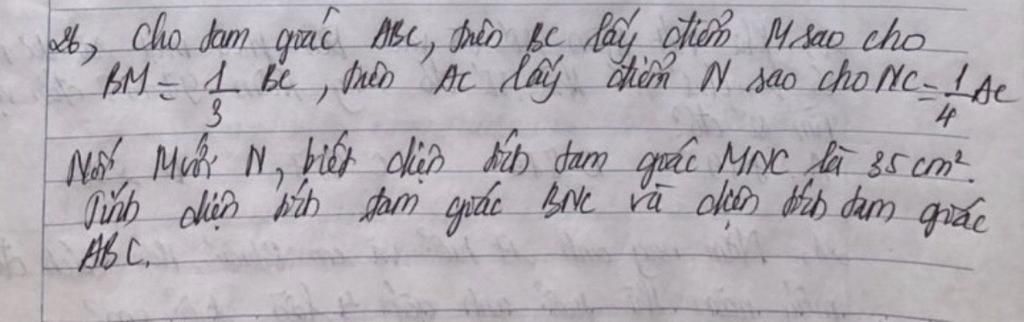 26, Cho tam giác ABC, trên BC lấy điểm M sao cho
BM = 1/3 BC, trên AC lấy điểm N sao cho NC = 1/4 AC
Nối M với N, biết diện tích tam giác MNC là 35 cm².
Tính diện tích tam giác BNC và diện tích tam giác
ABC.